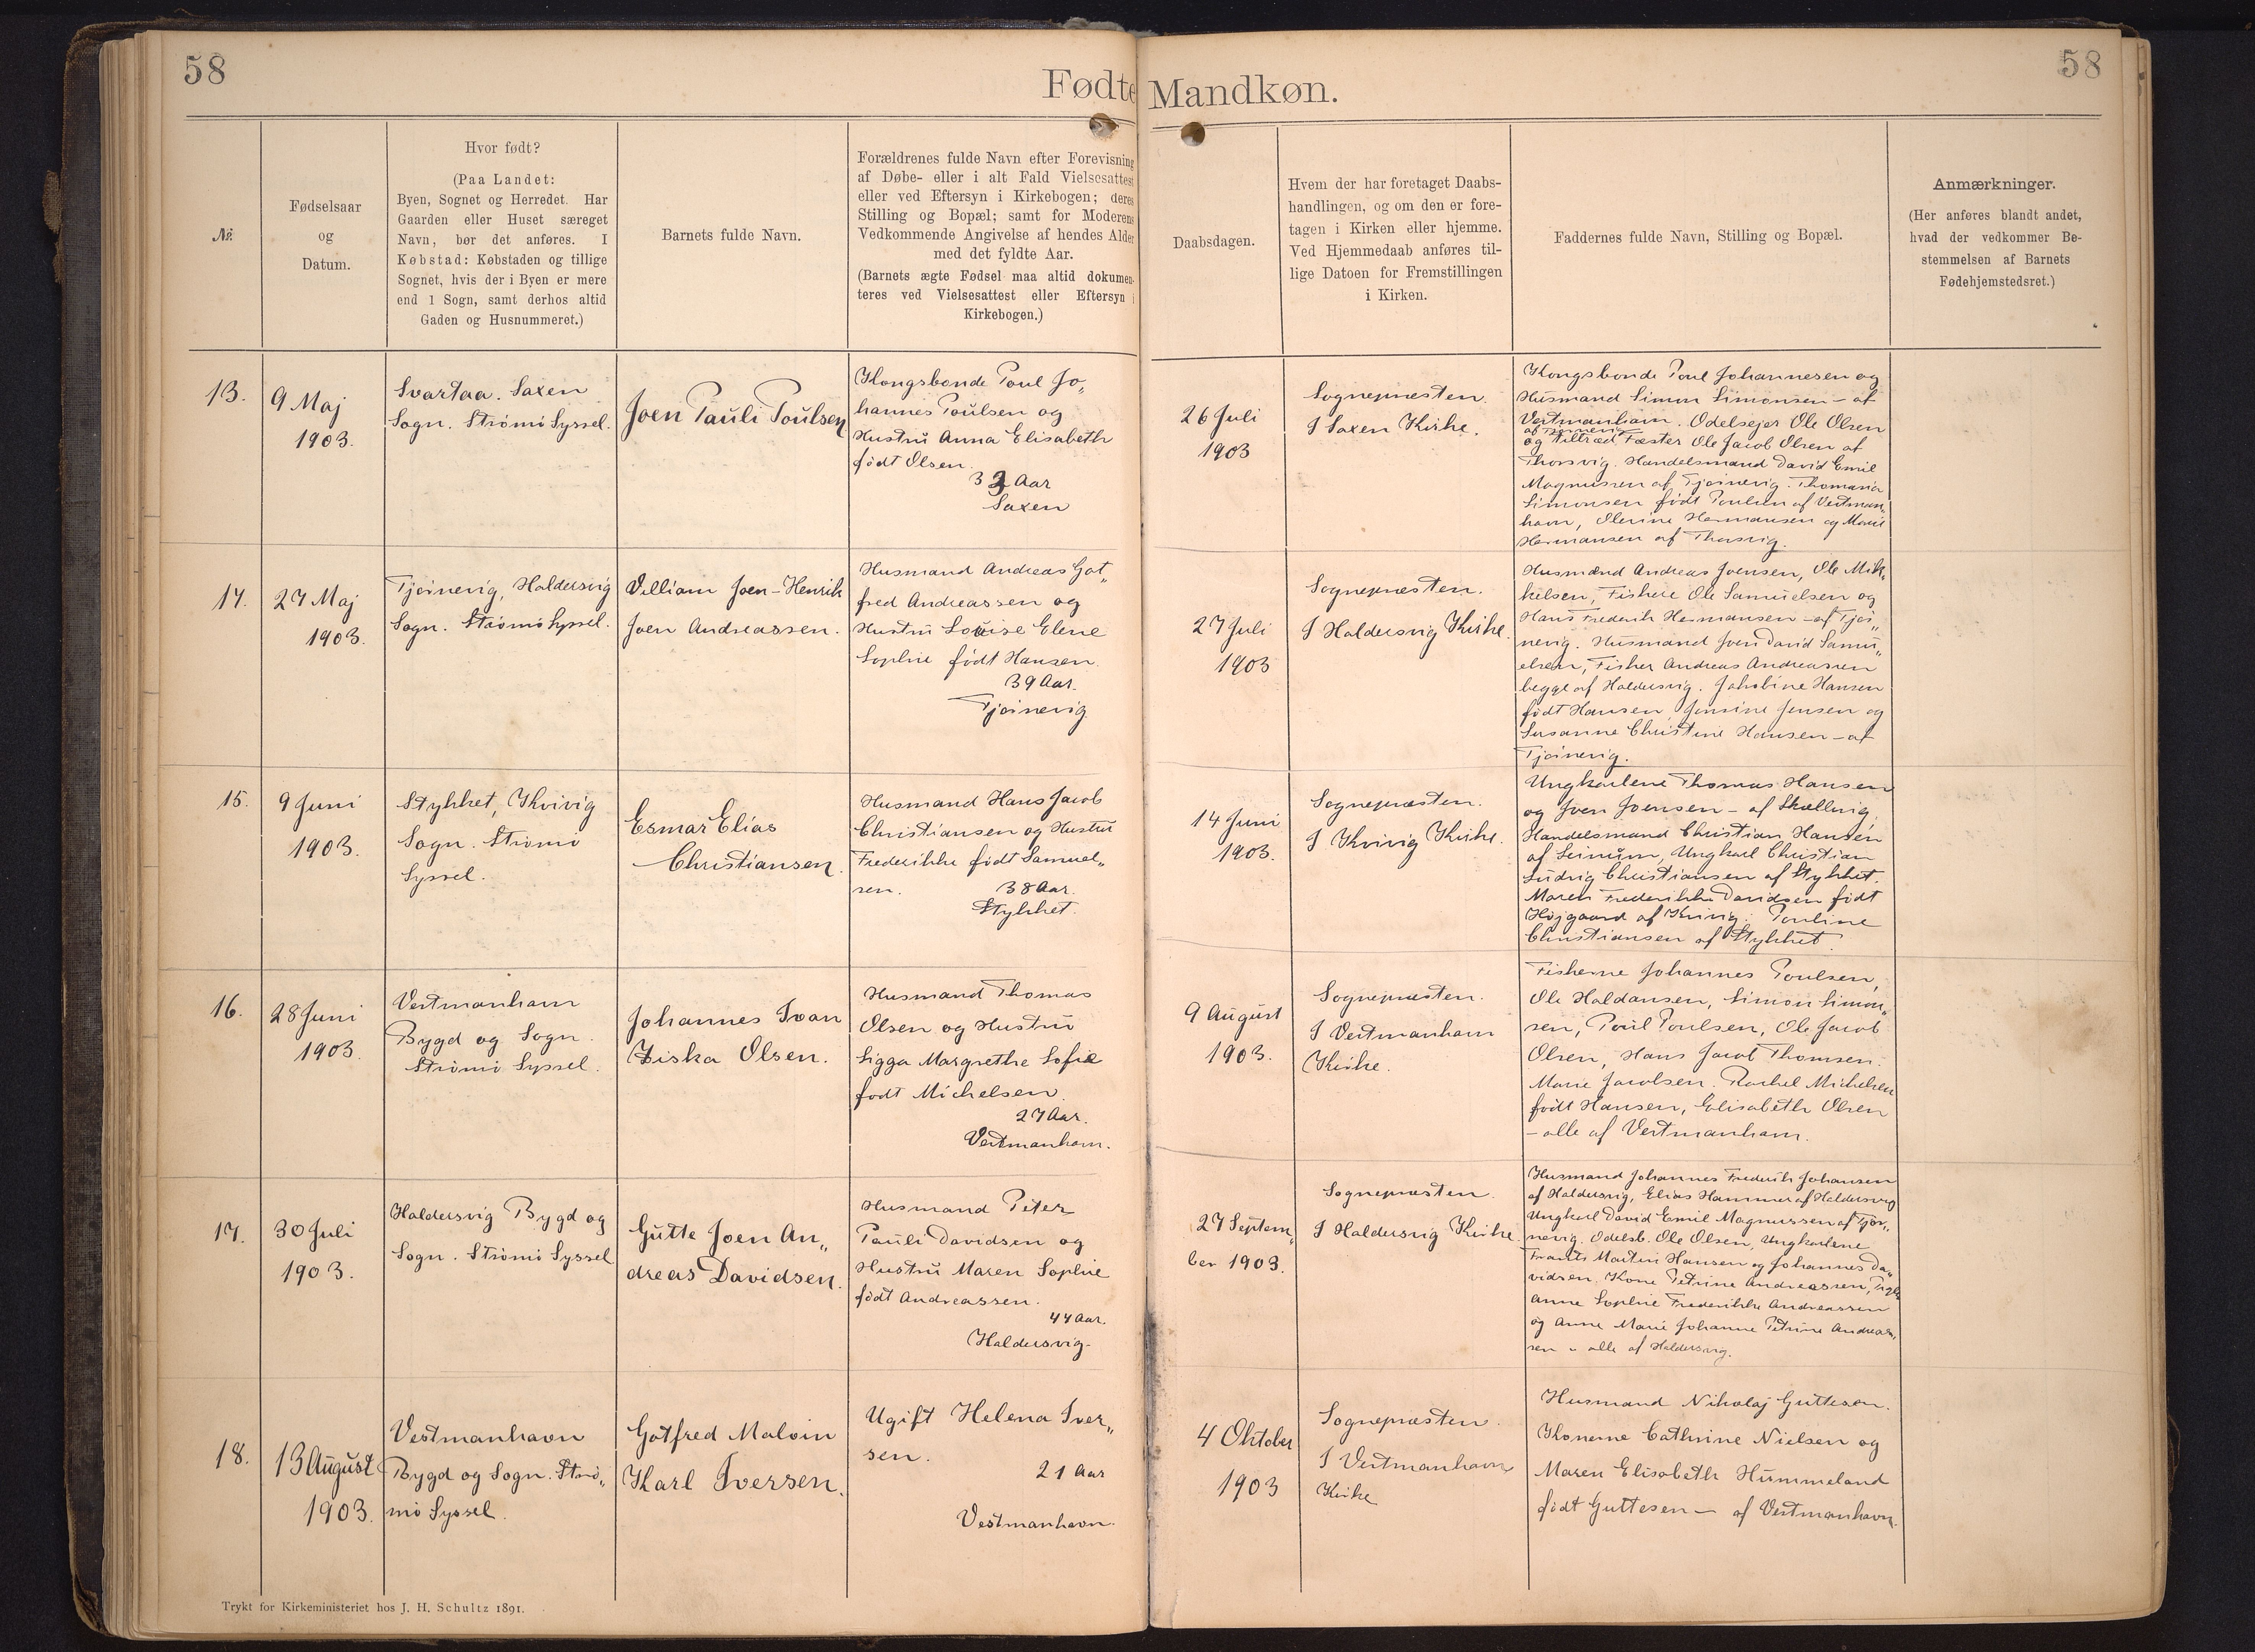 58
Fødte
Mandkøn.
58
№.
Fødselsaar
og
Datum.
Hvor født?
(Paa Landet:
Byen, Sognet og Herredet. Har
Gaarden eller Huset særeget
Navn, bør det anføres. I
Købstad: Købstaden og tillige
Sognet, hvis der i Byen er mere
end 1 Sogn, samt derhos altid
Gaden og Husnummeret.)
Barnets fulde Navn.
Forældrenes fulde Navn efter Forevisning
af Døbe- eller i alt Fald Vielsesattest
eller ved Eftersyn i Kirkebogen; deres
Stilling og Bopæl; samt for Moderens
Vedkommende Angivelse af hendes Alder
med det fyldte Aar.
(Barnets ægte Fødsel maa altid dokumen-
teres ved Vielsesattest eller Eftersyn i
Kirkebogen.)
Daabsdagen.
Hvem der har foretaget Daabs-
handlingen, og om den er fore-
tagen i Kirken eller hjemme.
Ved Hjemmedaab anføres til-
lige Datoen for Fremstillingen
i Kirken.
Faddernes fulde Navn, Stilling og Bopæl.
Anmærkninger.
(Her anføres blandt andet,
hvad der vedkommer Be-
stemmelsen af Barnets
Fødehjemstedsret.)
13.
9 Maj
1903.
Svartaa. Saxen
Sogn. Strømø Syssel.
Joen Pauli Poulsen
Kongsbonde Poul Jo„
hannes Poulsen og
Hustru Anna Elisabeth
født Olsen.
33 Aar
Saxen
26 Juli
1903
Sognepræsten.
I Saxen Kirke.
Kongsbonde Poul Johannesen og
Husmand Simon Simonsen – af
Vestmanhavn. Odelsejer Ole Olsen
og Tiltræd Fæster Ole Jacob Olsen af
Thorsvig. Handelsmand David Emil
Magnussen af Tjørnevig. Thomasia
Simonsen født Poulsen af Vestman„
havn, Olevine Hermansen og Marie
Hermansen af Thorsvig.
14.
27 Maj
1903.
Tjørnevig, Haldersvig
Sogn. Strømø Syssel.
Villiam Joen-Henrik
Joen Andreassen.
Husmand Andreas Got„
fred Andreassen og
Hustru Louise Elene
Sophie født Hansen.
39 Aar.
Tjørnevig
27 Juli
1903
Sognepræsten.
I Haldersvig Kirke.
Husmænd Andreas Joensen, Ole Mik„
kelsen, Fiskere Ole Samuelsen og
Hans Frederik Hermansen – af Tjør„
nevig. Husmand Joen David Samu„
elsen, Fisker Andreas Andreassen
begge af Haldersvig. Jakobine Hansen
født Hansen, Jensine Jensen og
Susanne Christine Hansen – af
Tjørnevig.
15.
9 Juni
1903.
Stykket, Kvivig
Sogn. Strømø
Syssel.
Esmar Elias
Christiansen.
Husmand Hans Jacob
Christiansen og Hustru
Frederikke født Samuel„
sen.
38 Aar.
Stykket.
14 Juni
1903.
Sognepræsten.
I Kvivig Kirke.
Ungkarlene Thomas Hansen
og Joen Joensen – af Skællvig,
Handelsmand Christian Hansen
af Leinum, Ungkarl Christian
Ludvig Christiansen af Stykket.
Maren Frederikke Davidsen født
Højgaard af Kvivig. Pouline
Christiansen af Stykket.
16.
28 Juni
1903.
Vestmanhavn
Bygd og Sogn.
Strømø Syssel.
Johannes Ivan
Ziska Olsen.
Husmand Thomas
Olsen og Hustru
Sigga Margrethe Sofie
født Michelsen.
27 Aar.
Vestmanhavn.
9 August
1903.
Sognepræsten.
I Vestmanhavn
Kirke.
Fiskerne Johannes Poulsen,
Ole Haldansen, Simon Simon„
sen, Poul Poulsen, Ole Jacob
Olsen, Hans Jacob Thomsen.
Marie Jacobsen. Rachel Michelsen
født Hansen, Elisabeth Olsen
– alle af Vestmanhavn.
17.
30 Juli
1903.
Haldersvig Bygd og
Sogn. Strømø Syssel
Gutte Joen An„
dreas Davidsen.
Husmand Peter
Pauli Davidsen og
Hustru Maren Sophie
født Andreassen.
44 Aar.
Haldersvig.
27 Septem„
ber 1903.
Sognepræsten.
I Haldersvig Kirke.
Husmand Johannes Frederik Johansen
af Haldersvig, Elias Hammer af Haldersvig
Ungkarl David Emil Magnussen af Tjør„
nevig. Odelsb. Ole Olsen, Ungkarlene
Frants Martin Hansen og Johannes Da„
vidsen. Kone Petrine Andreassen,
Anne Sophie Frederikke Andreassen
og Anne Marie Johanne Petrine Andreas„
sen – alle af Haldersvig.
18.
13 August
1903.
Vestmanhavn
Bygd og Sogn. Strø„
mø Syssel.
Gotfred Malvin
Karl Iversen.
Ugift Helena Iver„
sen.
21 Aar
Vestmanhavn.
4 Oktober
1903
Sognepræsten.
I Vestmanhavn
Kirke
Husmand Nikolaj Guttesen.
Konerne Cathrine Nielsen og
Maren Elisabeth Hummeland
født Guttesen – af Vestmanhavn.
Trykt for Kirkeministeriet hos J. H. Schultz 1891.